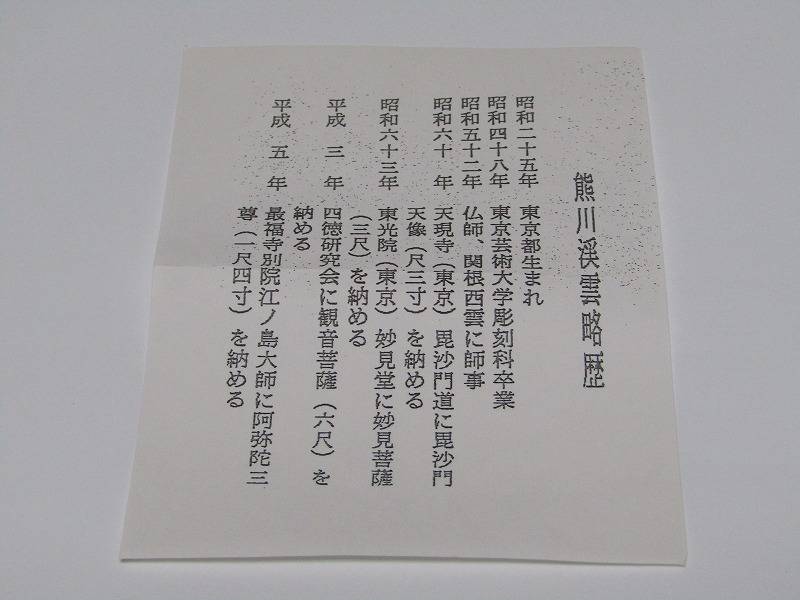 熊川渓雲略歴
昭和二十五年 東京都生まれ
昭和四十八年 東京芸術大学彫刻科卒業
昭和五十二年 仏師、関根西雲に師事
昭和六十 年 天現寺（東京）毘沙門道に毘沙門
天像（尺三寸）を納める
昭和六十三年 東光院（東京）妙見堂に妙見菩薩
（三尺）を納める
平成 三 年 四徳研究会に観音菩薩（六尺）を
納める
平成 五 年 最福寺別院江ノ島大師に阿弥陀三
尊（一尺四寸）を納める